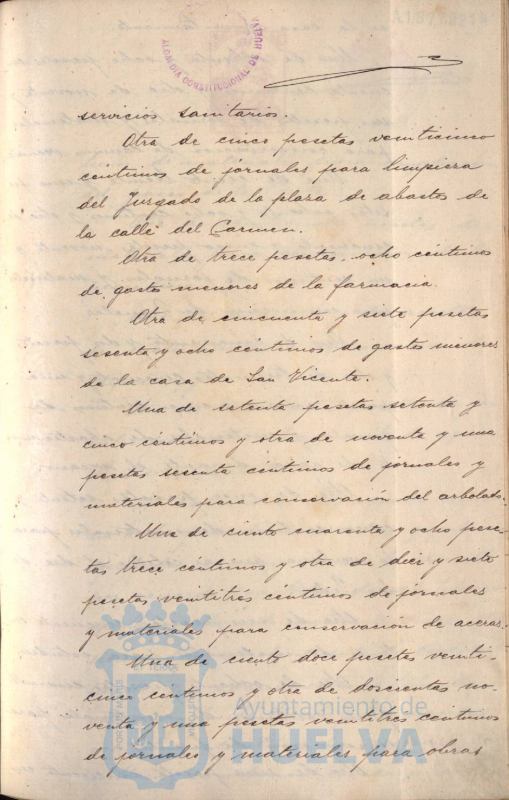 ALCALDIA CONSTITUCIONAL DE HUELVA
servicios sanitarios.
Otra de cinco pesetas veinticinco
céntimos de jornales para limpieza
del Juzgado de la plaza de abastos de
la calle del Carmen.
Otra de trece pesetas ocho céntimos
de gastos menores de la farmacia.
Otra de cincuenta y siete pesetas
sesenta y ocho céntimos de gastos menores
de la casa de San Vicente.
Una de setenta pesetas setenta y
cinco céntimos y otra de noventa y una
pesetas sesenta céntimos de jornales y
materiales para conservación del arbolado.
Una de ciento cuarenta y ocho pese-
tas trece céntimos y otra de diez y siete
pesetas veintitrés céntimos de jornales
y materiales para conservación de aceras.
Una de ciento doce pesetas veinti-
cinco céntimos y otra de doscientas no-
venta y una pesetas veintitres céntimos
de jornales y materiales para obras
Ayuntamiento de
HUELVA